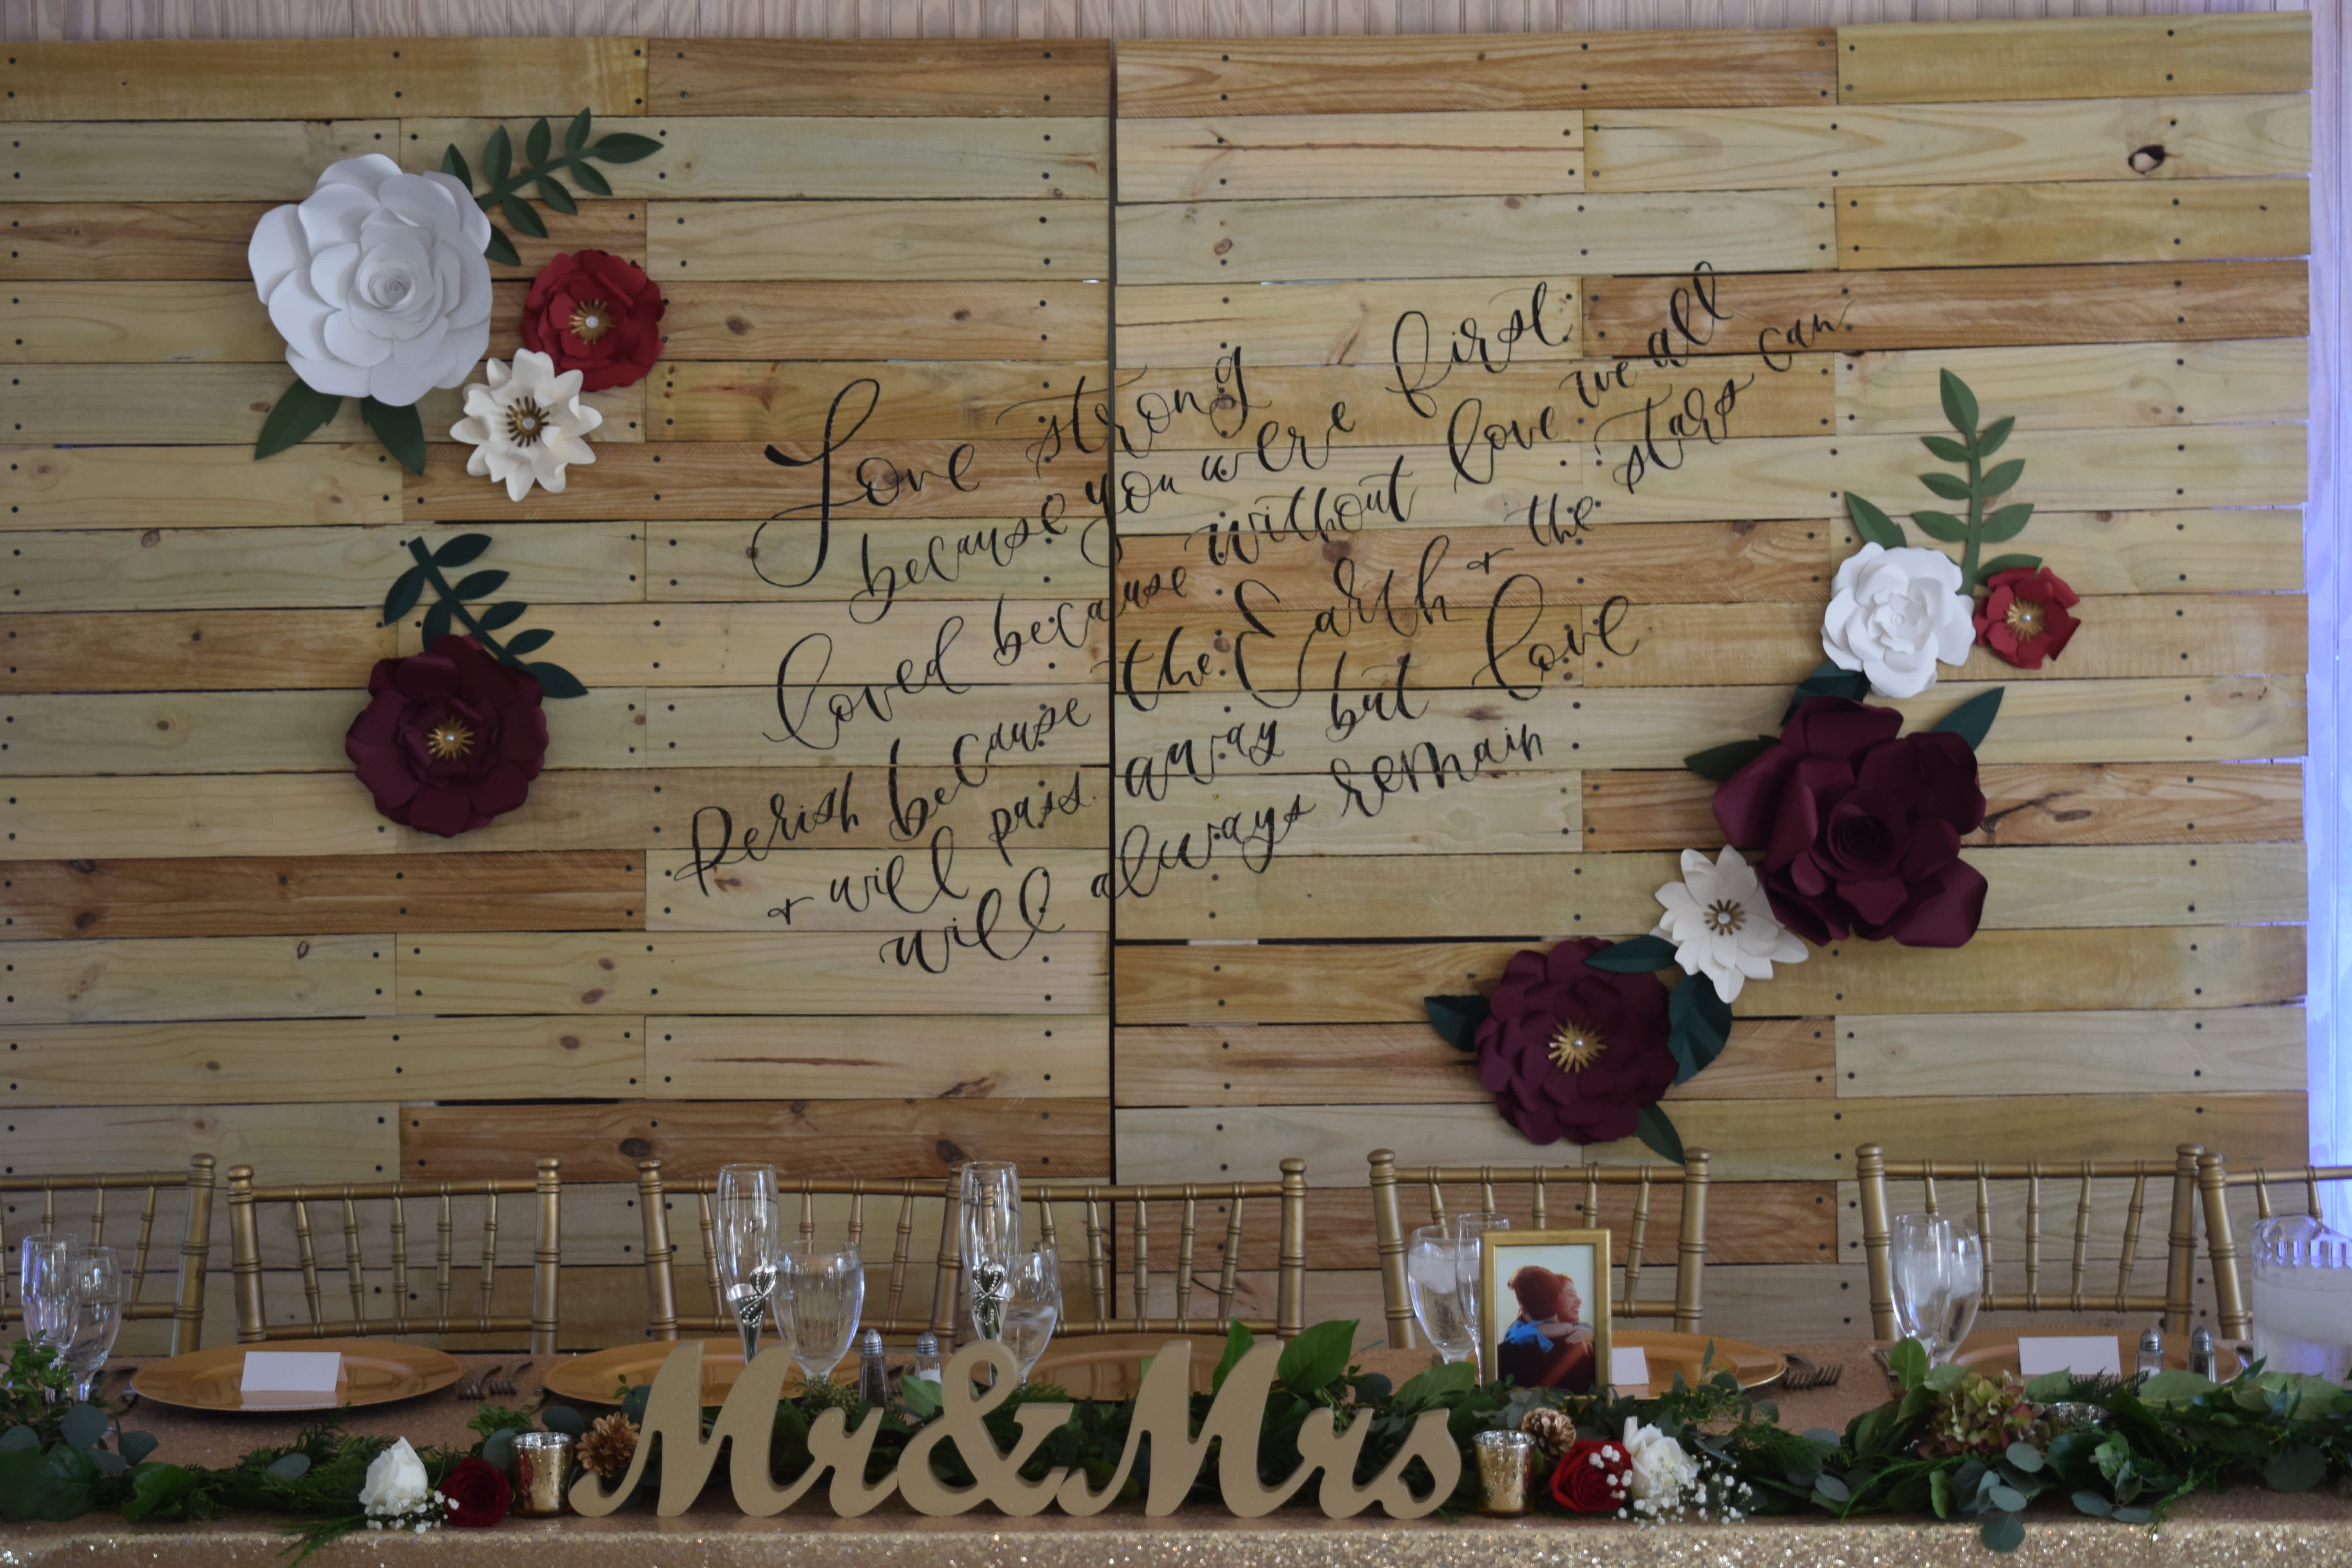 Love strong
because you were first
loved because without love we all
Perish because the Earth & the stars can
& will pass away but love
will always remain
Mr & Mrs